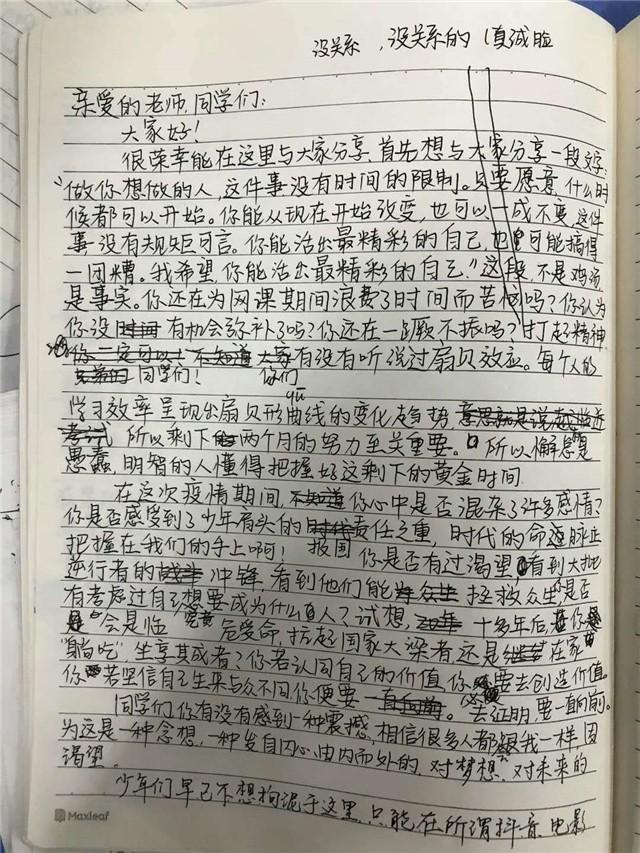 没关系，没关系的 真诚脸
亲爱的老师,同学们:
大家好!
很荣幸能在这里与大家分享,首先想与大家分享一段文字:
"做你想做的人,这件事没有时间的限制。只要愿意,什么时
候都可以开始。你能从现在开始改变,也可以一成不变,这件
事没有规矩可言。你能活出最精彩的自己,也可能搞得
一团糟。我希望,你能活出最精彩的自己。"这段,不是鸡汤
是事实。你还在为网课期间浪费了时间而苦恼吗?你认为
你没有机会弥补了吗?你还在一蹶不振吗?打起精神,
你们有没有听说过扇贝效应。每个人的
同学们!
学习效率呈现出扇贝形曲线的变化趋势
所以剩下的两个月的努力至关重要。所以懈怠是
愚蠢,明智的人懂得把握好这剩下的黄金时间
在这次疫情期间,你心中是否混杂了许多感情?
你是否感受到了少年肩头的责任之重,时代的命脉正
把握在我们的手上啊!报国 你是否有过渴望,看到大批
逆行者的冲锋,看到他们能拯救众生,是否
有考虑过自己想要成为什么人?试想,十多年后,你
会是临危受命,抗起国家大梁者,还是在家
"躺吃",坐享其成者?你若认同自己的价值,你要去创造价值。
你若坚信自己生来与众不同,你便要去证明,要一直向前。
同学们,你有没有感到一种震撼,相信很多人都跟我一样,因
为这是一种念想,一种发自内心,由内而外的,对梦想,对未来的
渴望。
少年们早已不想拘泥于这里,只能在所谓抖音、电影
Maxleaf